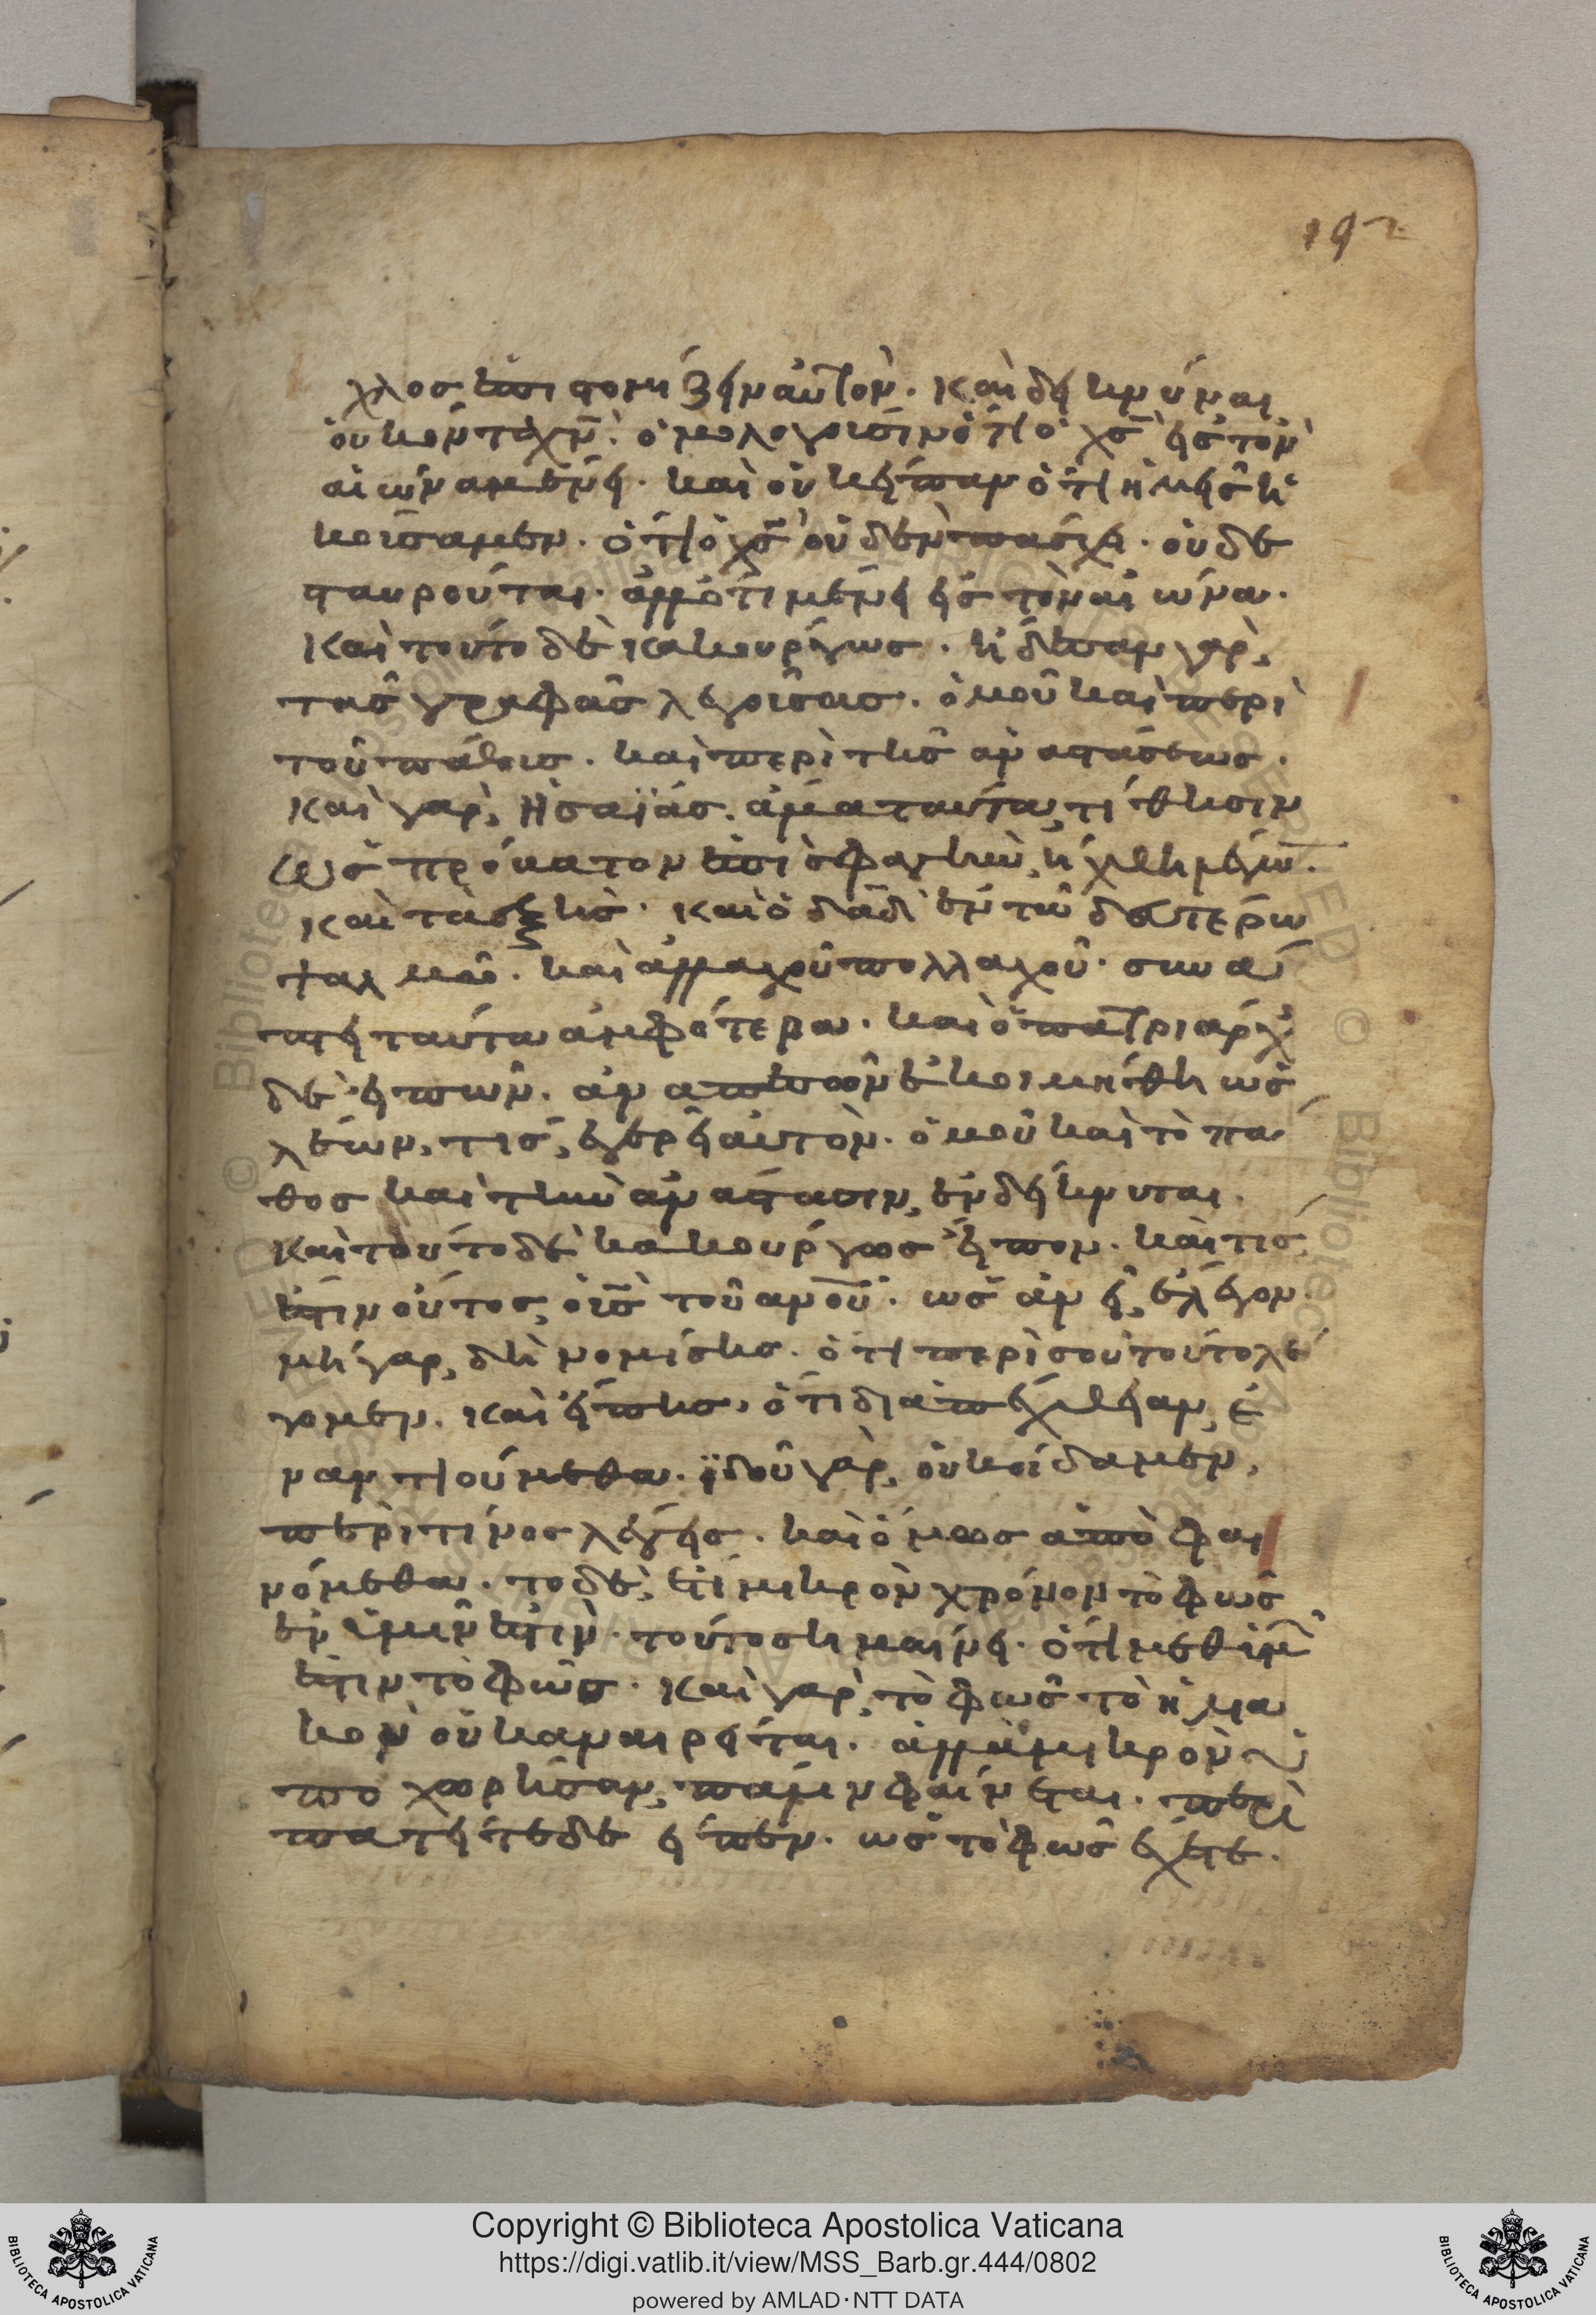 192
χλος ἐπιστομίζειν αὐτὸν. καὶ δεικνύναι
οὐκ ὄντα χν̅. ὁμολογοῦσιν ὅτι ὁ χς̅ εἰς τὸν
αἰῶνα μένει. καὶ οὐκ εἶπαν ὅτι ἡμεῖς ἠ
κούσαμεν. ὅτι ὁ χς̅ οὐδὲν πάσχει. οὐδε
σταυροῦται. ἀλλ' ὅτι μένει εἰς τὸν αἰῶνα.
καὶ τοῦτο δὲ κακούργως. ἤδεσαν γὰρ,
τὰς γραφὰς λεγούσας. ὁμοῦ καὶ περὶ
τοῦ πάθους. καὶ περὶ τῆς ἀναστάσεως.
καὶ γὰρ, Ἡσαΐας. ἅμα ταῦτα, τίθησιν
ὡς πρόβατον ἐπὶ σφαγὴν, ἤχθη λέγων.
καὶ τὰ ἑξῆς. καὶ ὁ δα̅δ ἐν τῷ δευτέρω
ψαλμῶ. καὶ ἀλλαχοῦ πολλαχοῦ. συνά
πτει ταῦτα ἀμφότερα. καὶ ὁ πατριάρχ
δὲ εἰπὼν. ἀναπεσὼν ἐκοιμήθη ὡς
λέων, τίς, ἐγερεῖ αὐτὸν. ὁμοῦ καὶ τὸ πα
θος καὶ τὴν ἀνάστασιν, ἐνδείκνυται.
καὶ τοῦτο δὲ κακούργως εἶπον. καὶ τίς
ἐστιν οὗτος, ὁ υς̅ τοῦ ανου̅. ὡς ἂν εἰ, ἔλεγον.
μὴ γὰρ, δὴ νομίσης. ὅτι περὶ σοῦ τοῦτο λέ
γομεν. καὶ εἴπης, ὅτι δι' ἀπέχθειαν, ἐ
ναντιούμεθα. ἰδοῦ γὰρ, οὐκ οἴδαμεν,
περὶ τίνος λέγεις. καὶ ὅμως ἀποφαι
νόμεθα. το δὲ, ἔτι μικρὸν χρόνον τὸ φῶς
ἐν ὑμῖν ἐστιν. τοῦτο σημαίνει. ὅτι μεθ' ὑμῶ
ἐστιν τὸ φῶς. καὶ γὰρ, τὸ φῶς τὸ ἡλια
κον οὐκ ἀναιρεῖται. ἀλλὰ μικρὸν ὑ
ποχωρῆσαν, πάλιν φαίνεται. περὶ
πατεῖτε δὲ εἶπεν. ὡς τὸ φῶς ἔχετε.
Copyright © Biblioteca Apostolica Vaticana
https://digi.vatlib.it/view/MSS_Barb.gr.444/0802
powered by AMLAD·NTT DATA